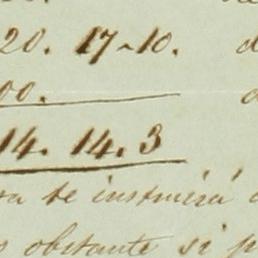 20. 17~10. d
00.
14. 14. 3
ra se instruirá
obstante si p